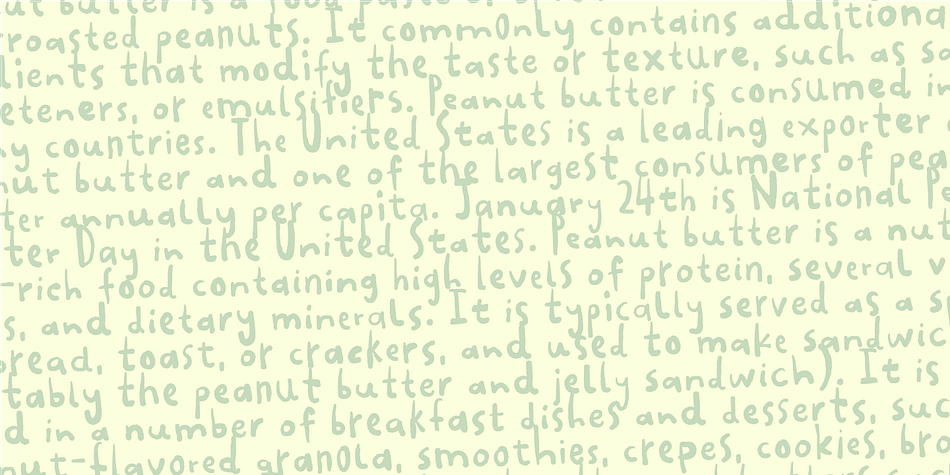 ut butter is a food paste or
roasted peanuts. It commonly contains additiona
ients that modify the taste or texture, such as sa
eteners, or emulsifiers. Peanut butter is consumed in
y countries. The United States is a leading exporter
ut butter and one of the largest consumers of pea
ter annually per capita. January 24th is National Pe
ter Day in the United States. Peanut butter is a nut
-rich food containing high levels of protein, several v
s, and dietary minerals. It is typically served as a s
read, toast, or crackers, and used to make sandwic
tably the peanut butter and jelly sandwich). It is
d in a number of breakfast dishes and desserts, suc
nut-flavored granola, smoothies, crepes, cookies, bro